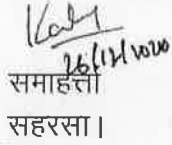 26/12/2020
समाहर्त्ता
सहरसा।